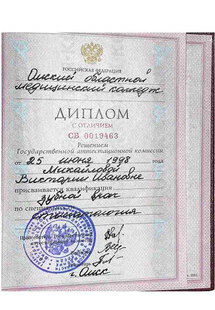 РОССИЙСКАЯ ФЕДЕРАЦИЯ
Омский областной
медицинский колледж
ДИПЛОМ
С ОТЛИЧИЕМ
СБ 0019463
Решением
Государственной аттестационной комиссии
от 25 июня 1998 года
Михайловой
Виктории Ивановне
присваивается квалификация
зубной врач
по специальности
стоматология
г. Омск